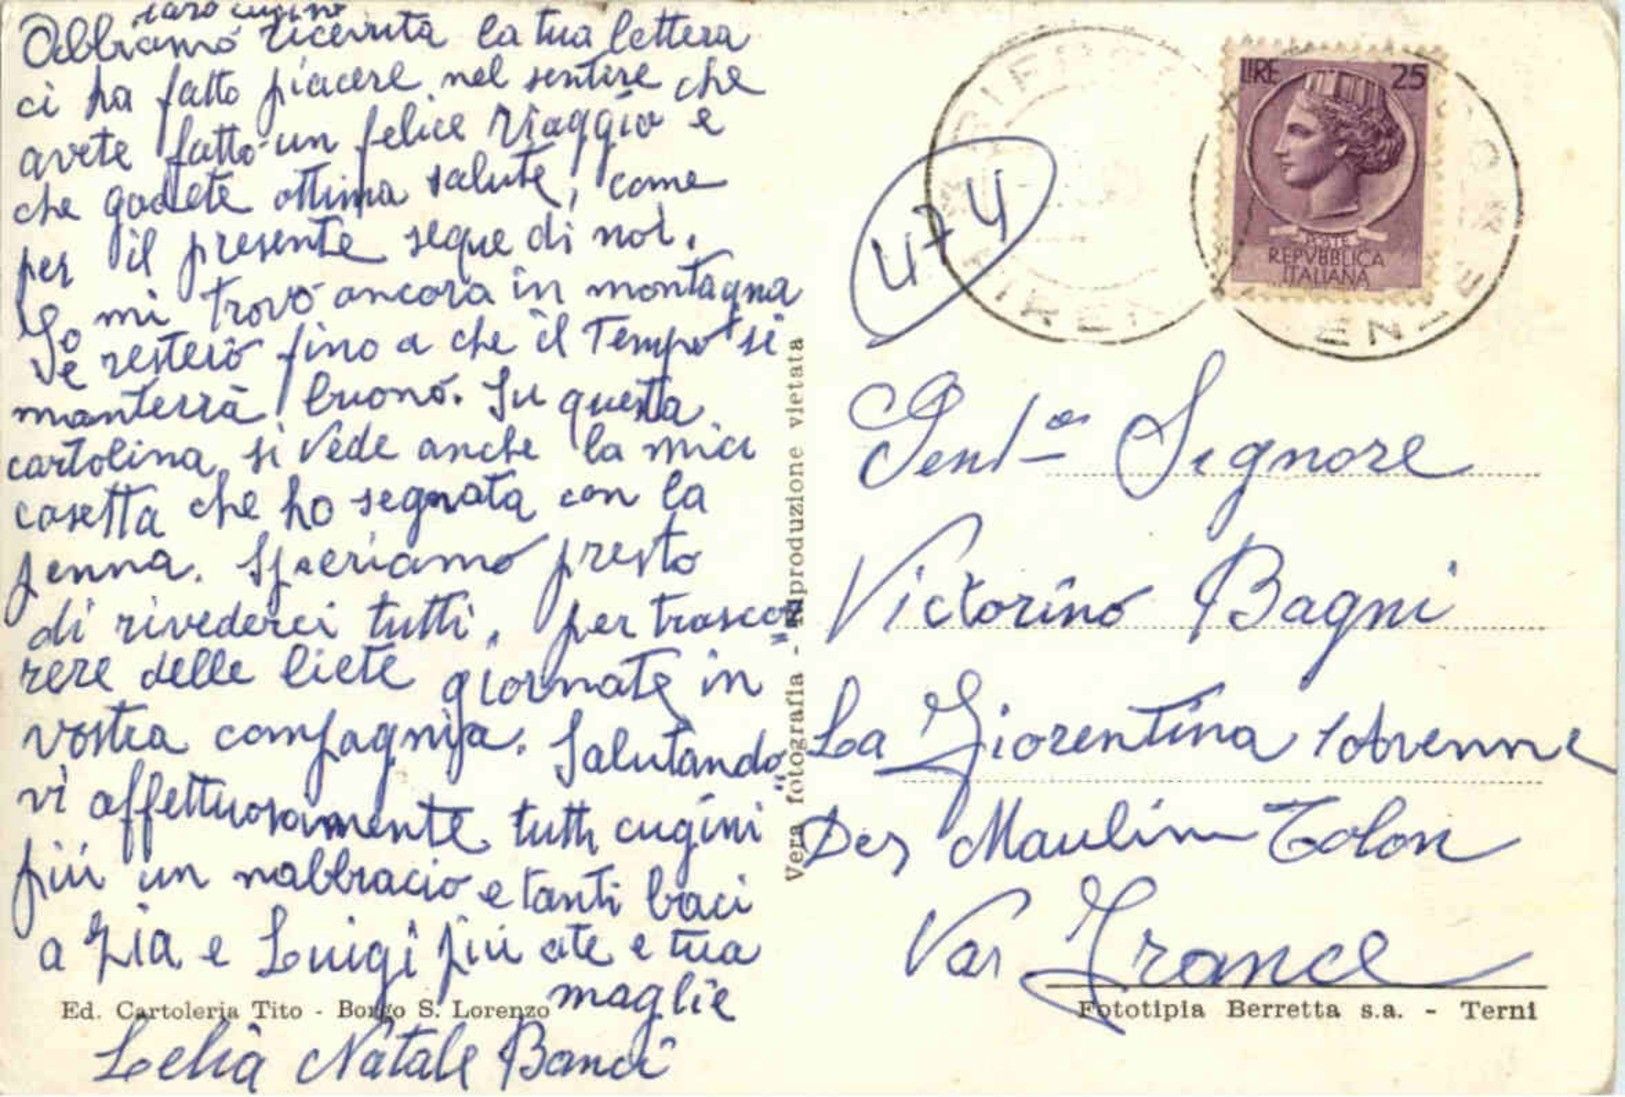 caro cugino
Abbiamo ricevuta la tua lettera
ci ha fatto piacere nel sentire che
avete fatto un felice viaggio e
che godete ottima salute, come
per il presente segue di noi.
Io mi trovo ancora in montagna
Ve resterò fino a che il Tempo si
manterrà buono. Su questa
cartolina si vede anche la mia
casetta che ho segnata con la
penna. Speriamo presto
di rivederci tutti, per trascor=
rere delle liete giornate in
vostra compagnia. Salutando
vi affettuosamente tutti cugini
più un nabbracio e tanti baci
a Zia e Luigi più ate e tua
maglie
Lelia Natale Banci
Ed. Cartoleria Tito - Borgo S. Lorenzo
Vera fotografia - Riproduzione vietata
474
LIRE 25
POSTE
REPVBBLICA
ITALIANA
FIRENZE
Gent. Signore
Victorino Bagni
La Fiorentina
Des Maulin Tolon
Var France
Fototipia Berretta s.a. - Terni